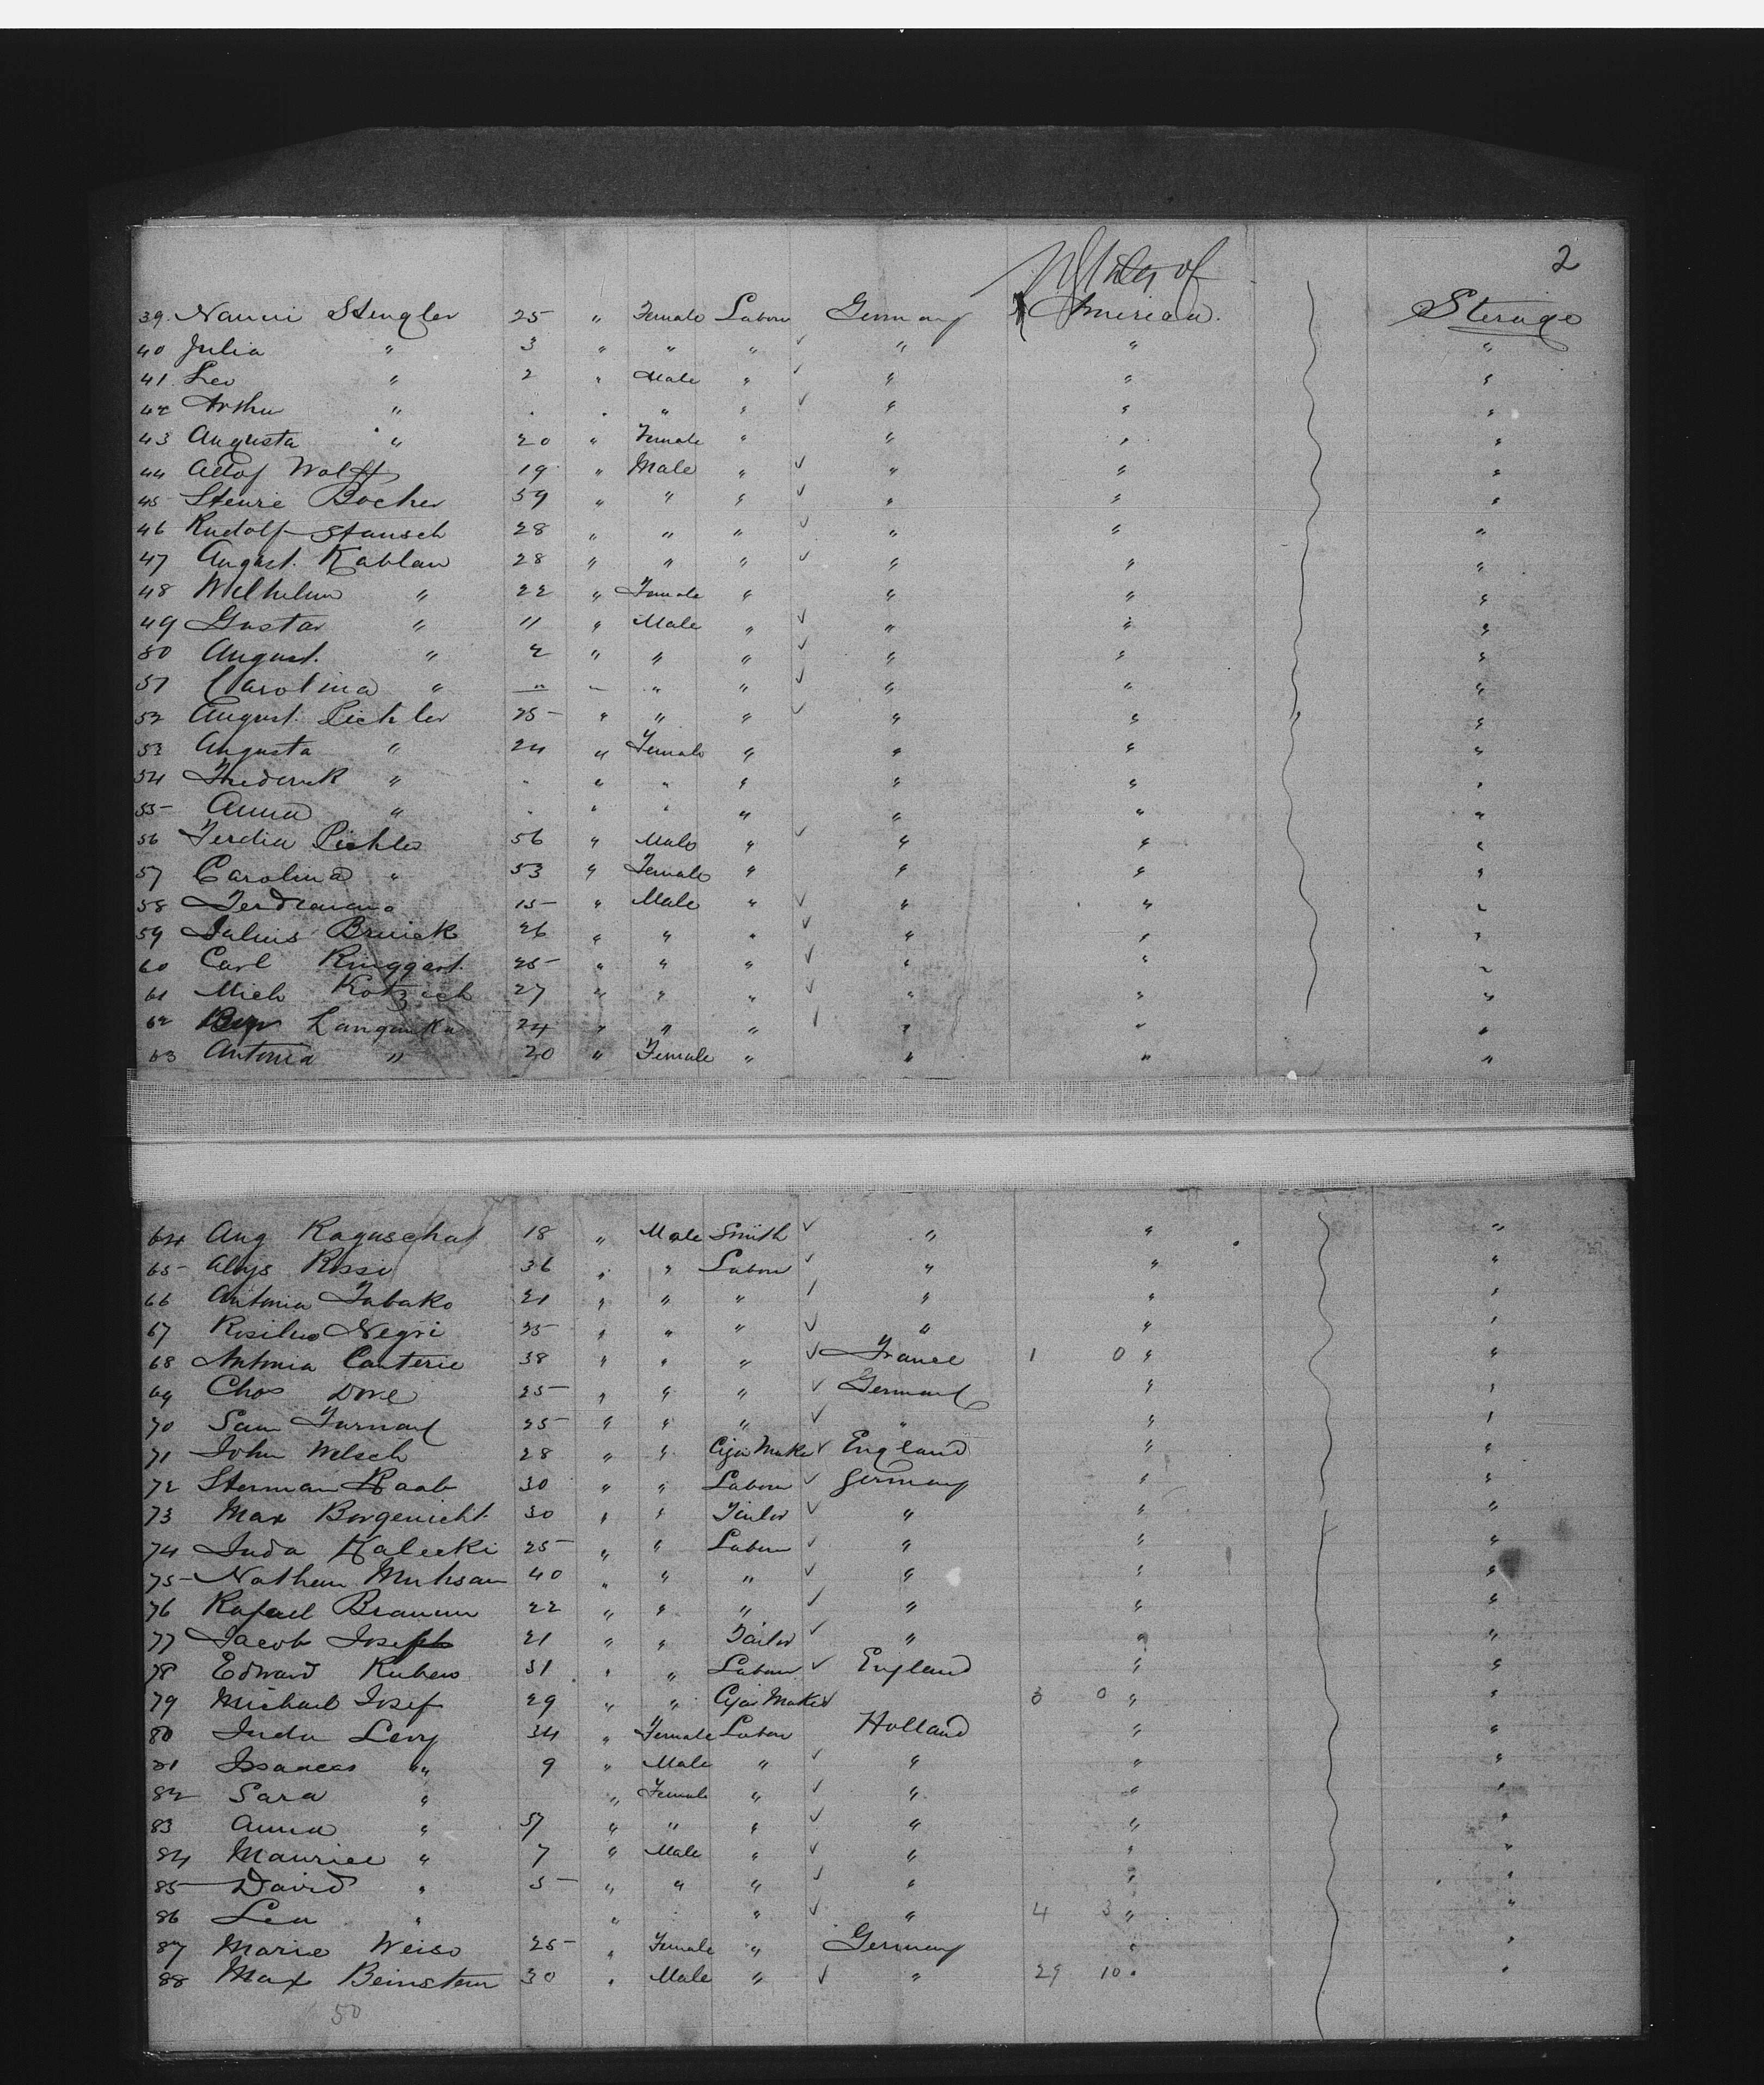 2
States of
39. Nanni Stengler 25 " Female Labour Germany America. Sterage
40 Julia " 3 " " " " " "
41. Leo " 2 " Male " " " "
42 Arthur " . . " " " " "
43 Augusta " 20 " Female " " " "
44 Adof Wolff 19 " Male " " " "
45 Stenrie Bocher 59 " " " " " "
46 Rudolf Stansch 28 " " " " " "
47 August. Kablau 28 " " " " " "
48 Wilhelm " 22 " Female " " " "
49 Gustav " 11 " Male " " " "
50 August. " 2 " " " " " "
51 Carolina " " " " " " " "
52 August. Pichler 25 " " " " " "
53 Augusta " 24 " Female " " " "
54 Frederick " . " " " " " "
55 Anna " . " " " " " "
56 Ferdin Pichler 56 " Male " " " "
57 Carolina " 53 " Female " " " "
58 Ferdinand 15 " Male " " " "
59 Julius Brinick 26 " " " " " "
60 Carl Ringgart 25 " " " " " "
61 Mich Kotzach 27 " " " " " "
62 Languska 24 " " " " " "
63 Antonia " 20 " Female " " " "
64 Aug Raguschat 18 " Male Smith " " "
65 Aloys Rossi 36 " " Labour " " "
66 Antonia Tabako 21 " " " " " "
67 Negri 25 " " " " " "
68 Antonia Canterie 38 " " " France 1 0 " "
69 Chas Dove 25 " " " Germany " "
70 Sam 25 " " " " " "
71 John Welsch 28 " " Cigar Maker England " "
72 Sterman Raab 30 " " Labour Germany " "
73 Max Borgenicht 30 " " Tailor " " "
74 Juda Kalecki 25 " " Labour " " "
75 Nathan Muhsam 40 " " " " " "
76 Rafael Braunn 22 " " " " " "
77 Jacob Joseph 21 " " Tailor " " "
78 Edward Ruben 31 " " Labour England " "
79 Michael Josef 29 " " Cigar Maker 3 0 " "
80 Juda Levy 34 " Female Labour Holland " "
81 Isaacs " 9 " Male " " " "
82 Sara " " Female " " " "
83 Anna " 57 " " " " " "
84 Maurice " 7 " Male " " " "
85 David " 5 " " " " " "
86 Lea " " " " 4 3 " "
87 Marie Weiss 25 " Female " Germany " "
88 Max Beinstem 30 " Male " " 29 10 " "
50